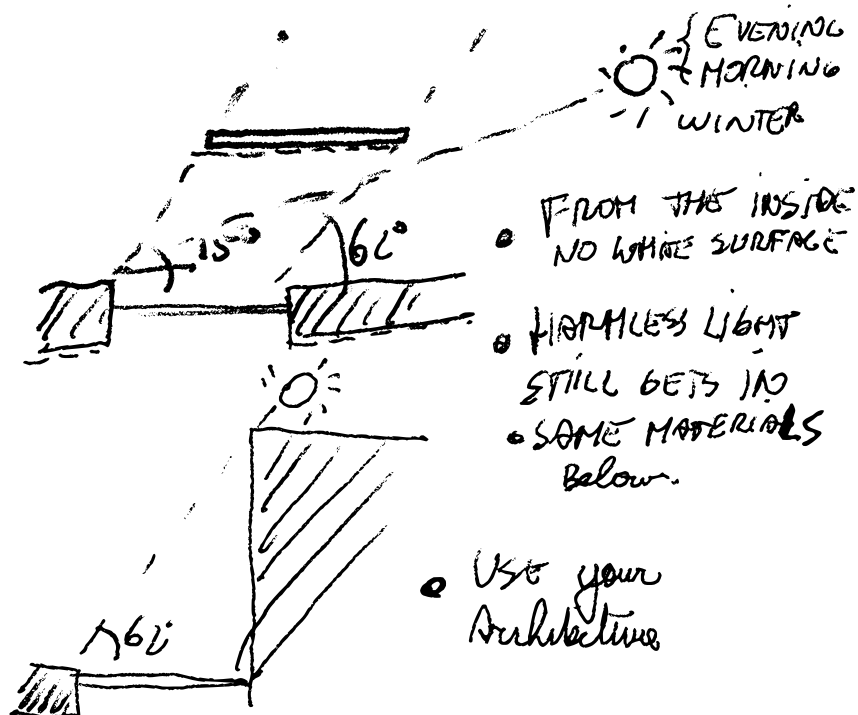 EVENING
MORNING
WINTER
15°
62°
• FROM THE INSIDE
NO WHITE SURFACE
• HARMLESS LIGHT
STILL GETS IN
• SAME MATERIALS
Below.
62°
• USE your
Architecture